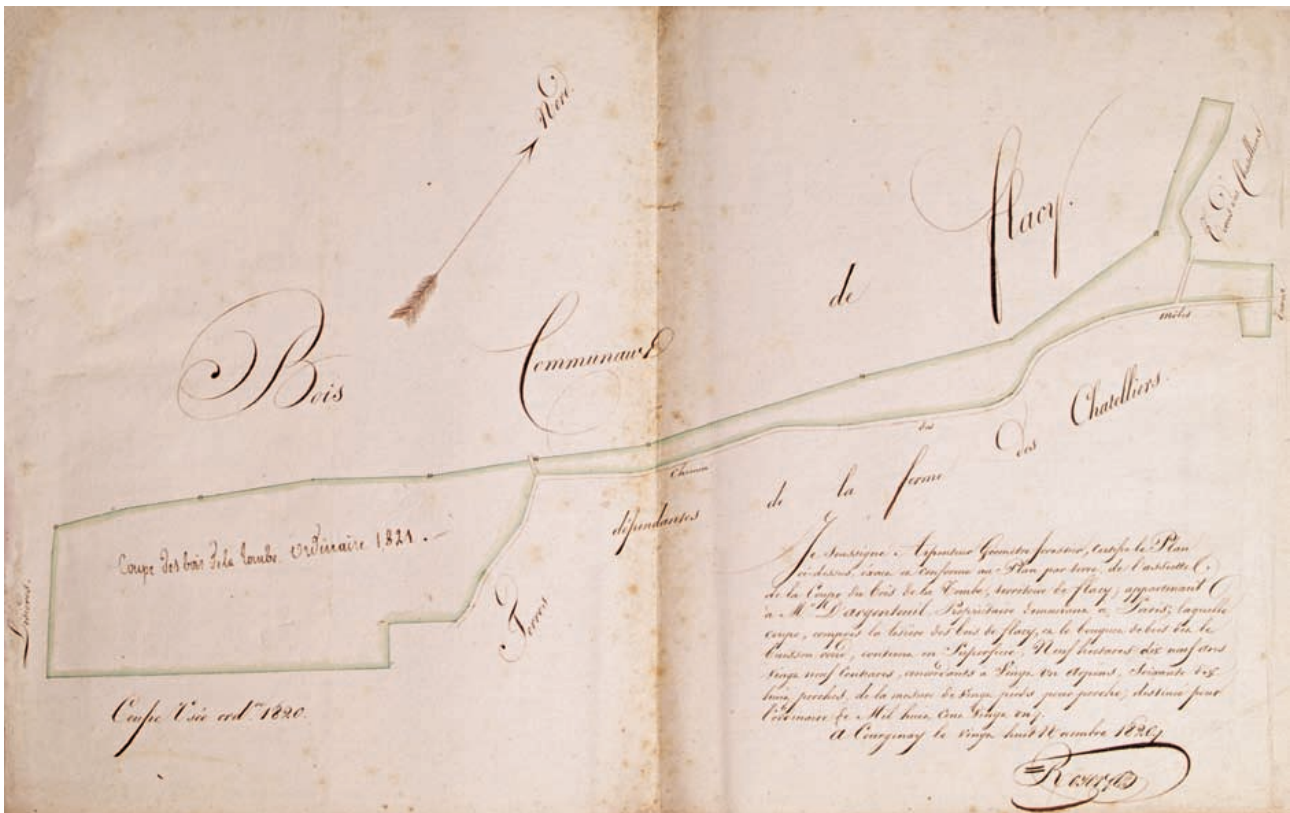 Nord.
Bois Communaux de flacy.
Etang des Chatelliers
Chemin des mêlés
Coupe des bois de la tombe. Ordinaire 1,821.
Terres dépendantes de la ferme des Chatelliers.
Coupe Usée ord.re 1820.
Je soussigné Arpenteur Géomètre forestier, certifie le Plan
ci-dessus, exact et conforme au Plan par terre, de l'assiette
de la Coupe du bois de la Tombe, territoire de flacy, appartenant
à M. D'argenteuil, Propriétaire demeurant à Paris, laquelle
coupe, compris la lisière des bois de flacy, et le bouquet de bois dit le
buisson rond, contient en Superficie, Neuf hectares dix neuf ares
vingt neuf Centiares, à Vingt un Arpens, Soixante dix
huit perches, de la mesure de Vingt pieds pour perche, destinée pour
l'ordinaire de Mil huit Cent Vingt un.
A Courgenay le vingt huit 1820.